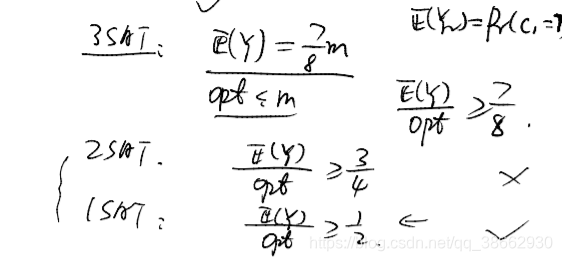 E(Y₁)=Pr(C₁=1
3SAT: E(Y)=7/8 m
opt ≤ m
E(Y)/opt ≥ 7/8.
2SAT. E(Y)/opt ≥ 3/4 ×
1SAT: E(Y)/opt ≥ 1/2. ← ✓
https://blog.csdn.net/qq_38662930